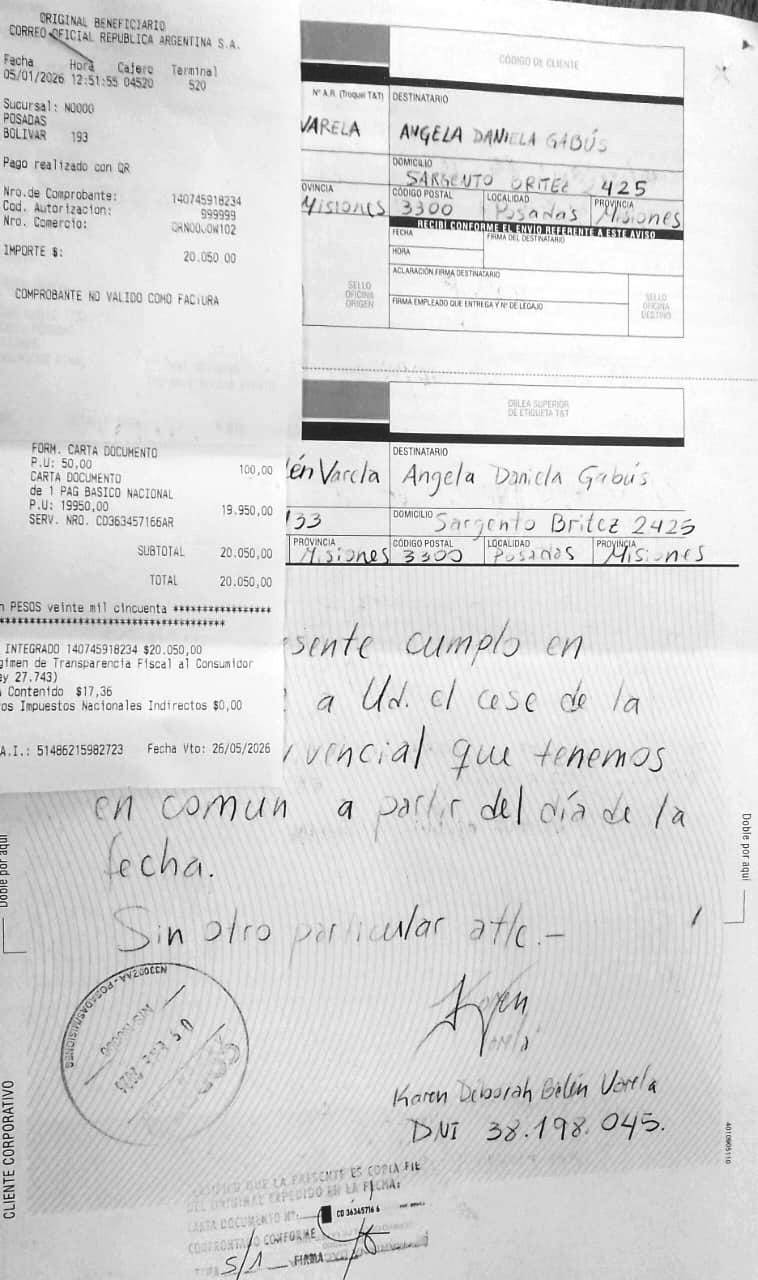 ORIGINAL BENEFICIARIO
CORREO OFICIAL REPUBLICA ARGENTINA S.A.
Fecha Hora Cajero Terminal
05/01/2026 12:51:55 04520 520
Sucursal: N0000
POSADAS
BOLIVAR 193
Pago realizado con QR
Nro.de Comprobante: 140745918234
Cod. Autorizacion: 999999
Nro. Comercio:
IMPORTE $: 20.050 00
COMPROBANTE NO VALIDO COMO FACTURA
FORM. CARTA DOCUMENTO
P.U: 50,00 100,00
CARTA DOCUMENTO
de 1 PAG BASICO NACIONAL
P.U: 19950,00 19.950,00
SERV. NRO. CD363457166AR
SUBTOTAL 20.050,00
TOTAL 20.050,00
n PESOS veinte mil cincuenta *****************
INTEGRADO 140745918234 $20.050,00
gimen de Transparencia Fiscal al Consumidor
ey 27.743)
Contenido $17,36
os Impuestos Nacionales Indirectos $0,00
A.I.: 51486215982723 Fecha Vto: 26/05/2026
CÓDIGO DE CLIENTE
Nº A.R. (Troquel T&T) DESTINATARIO
VARELA ANGELA DANIELA GABÚS
DOMICILIO
SARGENTO 425
OVINCIA CÓDIGO POSTAL LOCALIDAD PROVINCIA
Misiones 3300 Posadas Misiones
RECIBI CONFORME EL ENVIO REFERENTE A ESTE AVISO
FECHA FIRMA DEL DESTINATARIO
HORA
ACLARACIÓN FIRMA DESTINATARIO
SELLO OFICINA ORIGEN
FIRMA EMPLEADO QUE ENTREGA Y Nº DE LEGAJO
SELLO OFICINA DESTINO
OBLEA SUPERIOR
DE ETIQUETA T&T
DESTINATARIO
lén Varela Angela Daniela Gabús
133 DOMICILIO Sargento Britez 2425
PROVINCIA CÓDIGO POSTAL LOCALIDAD PROVINCIA
Misiones 3300 Posadas Misiones
sente cumplo en
a Ud. el cese de la
vencial que tenemos
en comun a partir del día de la
fecha.
Sin otro particular atte.-
Karen
Karen Deborah Belén Varela
DNI 38.198.045.
Doble por aquí
Doble por aquí
CLIENTE CORPORATIVO
QUE LA PRESENTE ES COPIA FIE
DEL ORIGINAL EXPEDIDO EN LA FECHA:
CARTA DOCUMENTO Nº: CD 36345716 6
CONFRONTADO CONFORME
5/1 FIRMA